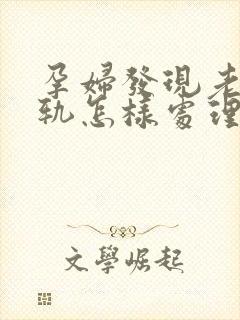 孕婦發現老
軌怎樣處理
文學崛起